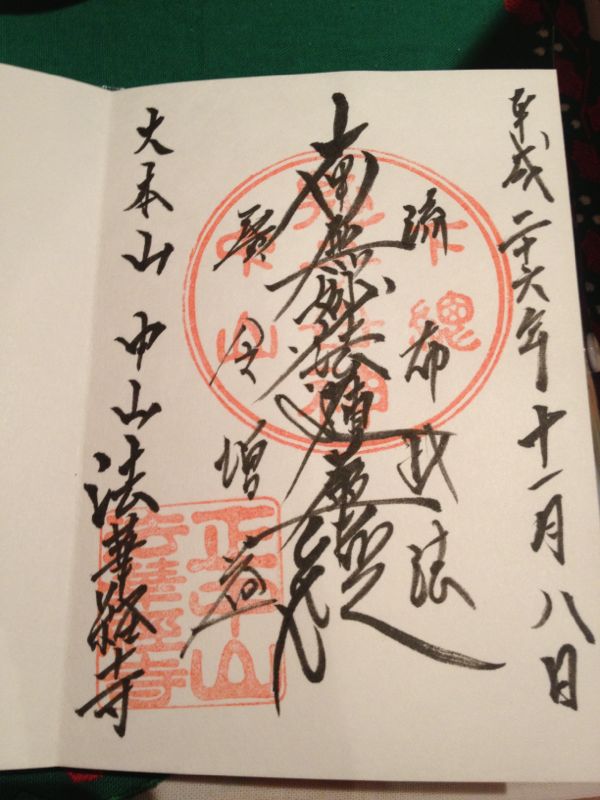 平成二十六年十一月八日
流布此法
南無妙法蓮華経
廣令増益
大本山 中山法華経寺
下總
中山
正中山
法華經寺